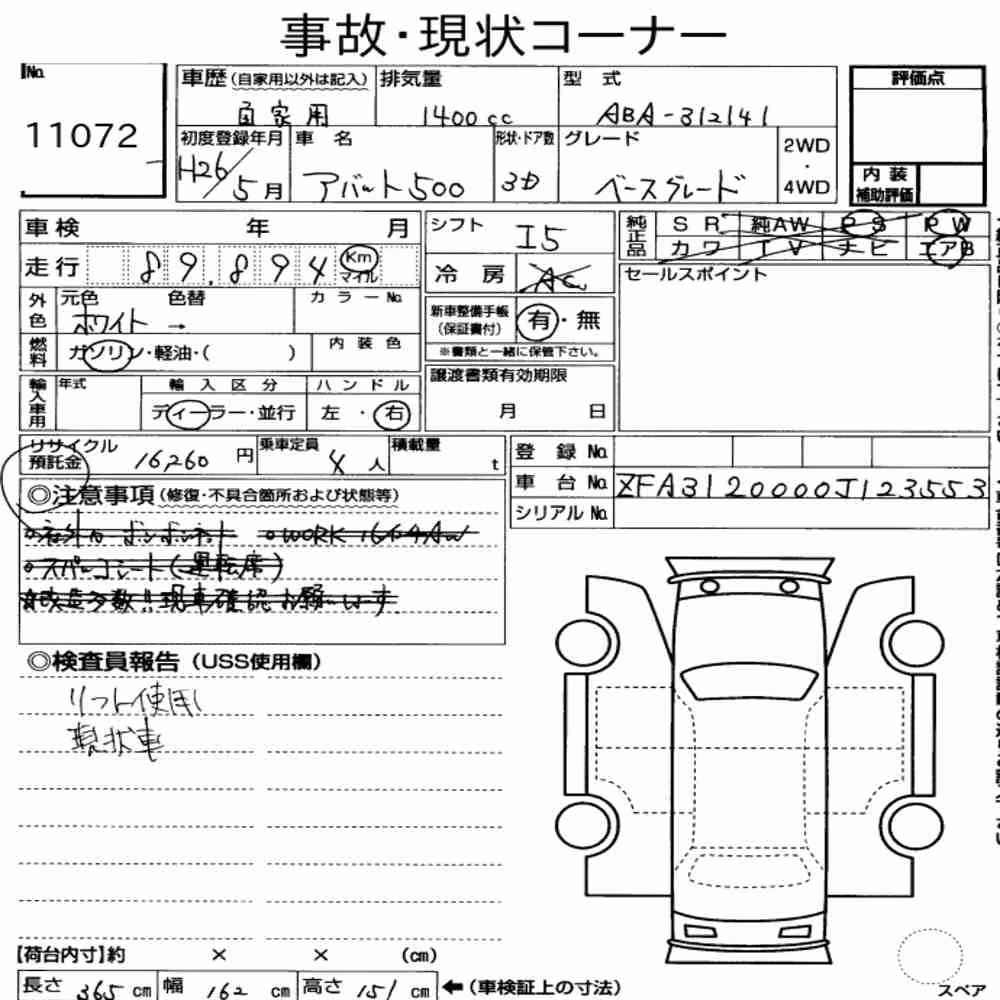 事故・現状コーナー
No. 11072
車歴（自家用以外は記入） 自家用
排気量 1400cc
型式 ABA-312141
評価点
初度登録年月 H26/5月
車名 アバルト500
形状・ドア数 3D
グレード ベースグレード
2WD・4WD
内装補助評価
車検 年 月
走行 89.894 Km マイル
シフト I5
純正品 SR 純AW PS PW
カワ TV ナビ エアB
冷房 AC
セールスポイント
外色 元色 ホワイト → 色替 カラーNo.
新車整備手帳（保証書付） 有・無
※書類と一緒に保管下さい。
燃料 ガソリン・軽油・（ ） 内装色
輸入車用 年式 輸入区分 ディーラー・並行 ハンドル 左・右
譲渡書類有効期限 月 日
リサイクル預託金 16260円 乗車定員 4人 積載量 t
登録No.
車台No. ZFA3120000J123553
シリアルNo.
◎注意事項（修復・不具合箇所および状態等）
・社外 ボンネット ・WORK 16インチAW
・スパルコシート（運転席）
☆改造多数!!現車確認お願いします。
◎検査員報告（USS使用欄）
リフト使用
現状車
【荷台内寸】約 × × （cm）
長さ 365 cm 幅 162 cm 高さ 151 cm ←（車検証上の寸法）
スペア